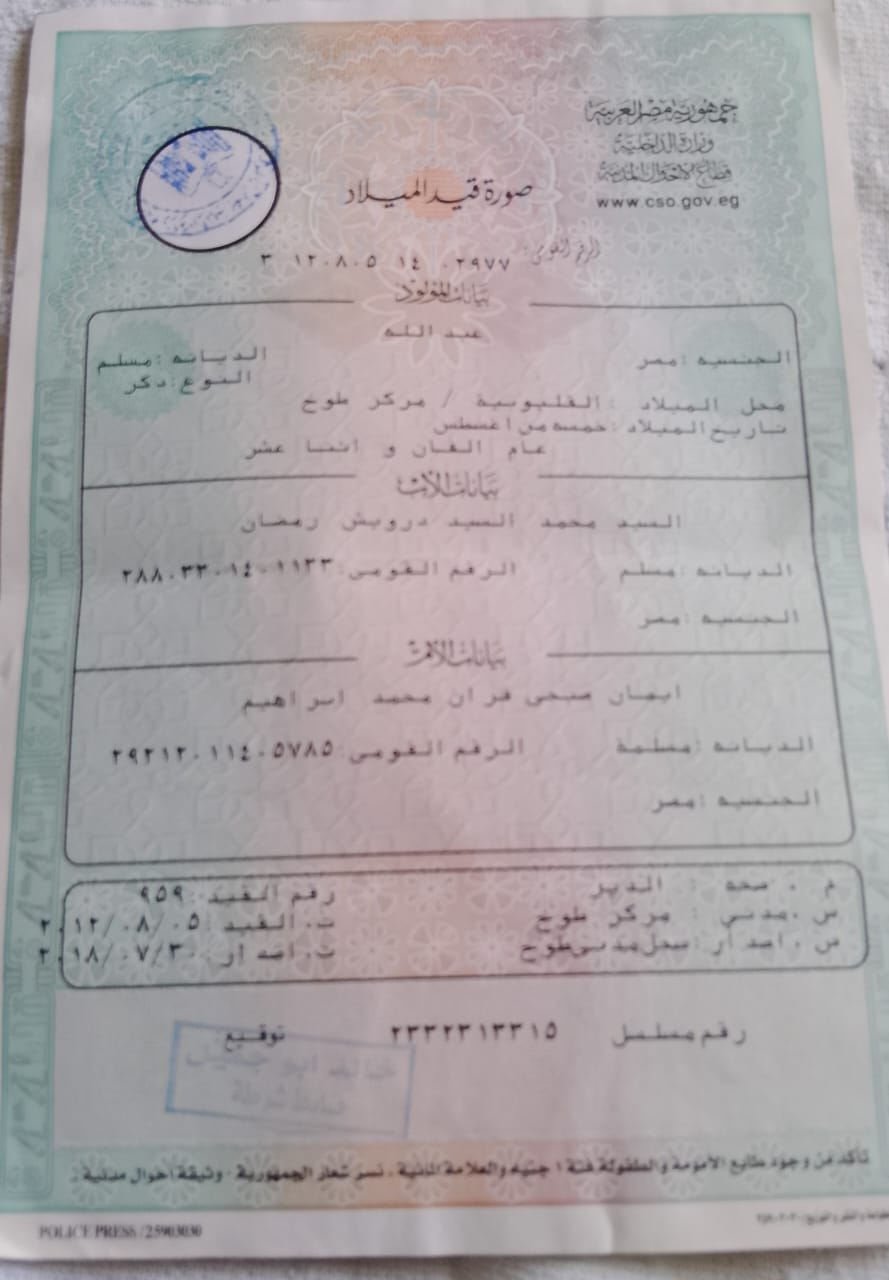 جمهورية مصر العربية
وزارة الداخلية
قطاع الأحوال المدنية
www.cso.gov.eg
صورة قيد الميلاد
الرقم القومى: ٣ ١٢٠٨٠٥ ١٤ ٠٢٩٧٧
بيانات المولود
عبد الله
الجنسيه :مصر الديانه :مسلم
النوع :ذكر
محل الميلاد :القليوبية / مركز طوخ
تاريخ الميلاد :خمسه من اغسطس
عام الفان و اثنا عشر
بيانات الأب
السيد محمد السيد درويش رمضان
الديانه :مسلم الرقم القومى:٢٨٨٠٣٣٠١٤٠١١٣٣
الجنسيه :مصر
بيانات الأم
ايمان صبحى فران محمد ابراهيم
الديانه :مسلمة الرقم القومى:٢٩٢١٢٠١١٤٠٥٧٨٥
الجنسيه :مصر
م . صحه : الدير رقم القيد :٩٥٩
س .مدني : مركز طوخ ت. القيد :٢٠١٢/٠٨/٠٥
س . اصدار :سجل مدنى طوخ ت. اصدار :٢٠١٨/٠٧/٣٠
رقم مسلسل ٢٣٣٢٣١٣٣١٥ توقيع
ضابط شرطة
تأكد من وجود طابع الأمومة والطفولة فئة ١ جنيه والعلامة المائية ، نسر شعار الجمهورية - وثيقة احوال مدنية .
POLICE PRESS /25903030